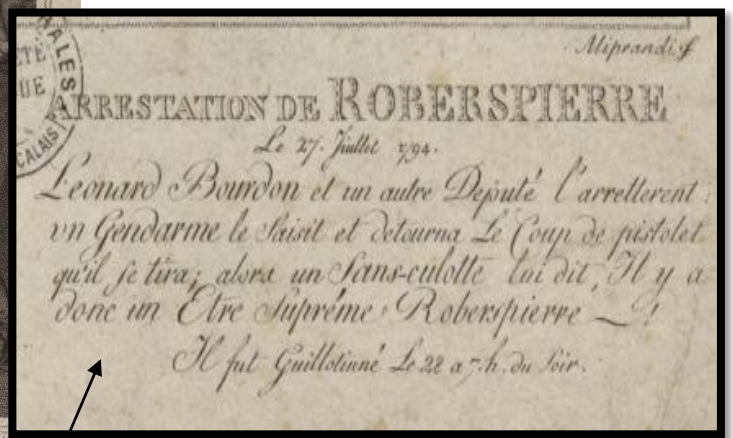 NALES
ETE
UE
CALAIS
Miprandi f
ARRESTATION DE ROBERSPIERRE
Le 27. Juillet 1794.
Leonard Bourdon et un autre Deputé l'arretterent :
un Gendarme le Saisit et detourna Le Coup de pistolet
qu'il se tira; alors un Sans-culotte lui dit, Il y a
donc un Etre Supréme, Roberspierre — !
Il fut Guillotinné Le 28 a 7. h. du Soir.